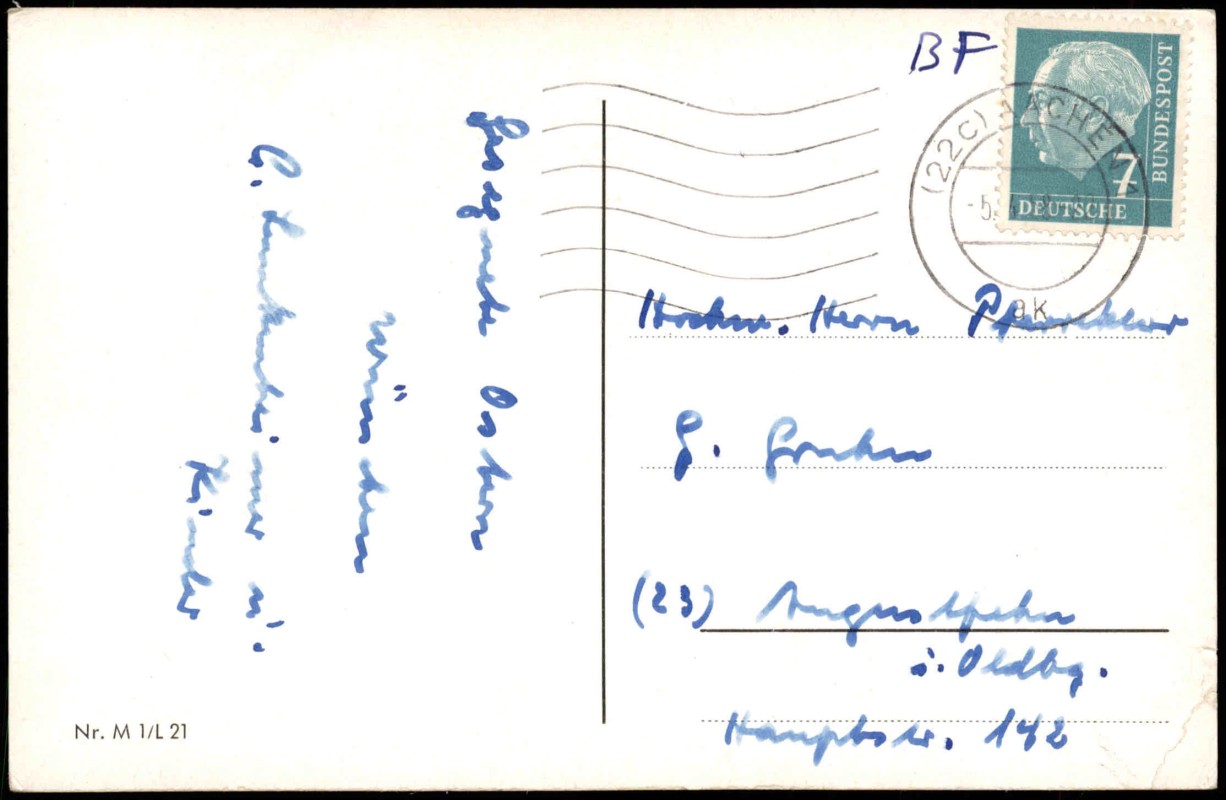 Gesegnete Ostern
wünschen
u.
Kinder
Nr. M 1/L 21
BF
7
DEUTSCHE
BUNDESPOST
(22c) AACHEN
-5.
ak
Hochw. Herrn
G.
(23) Augustfehn
i. Oldbg.
Hauptstr. 142